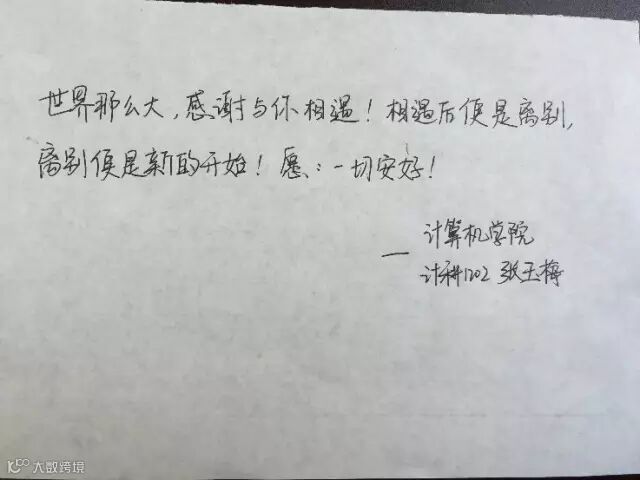 世界那么大，感谢与你相遇！相遇后便是离别，
离别便是新的开始！愿：一切安好！
计算机学院
— 计科1202 张玉梅
大数跨境